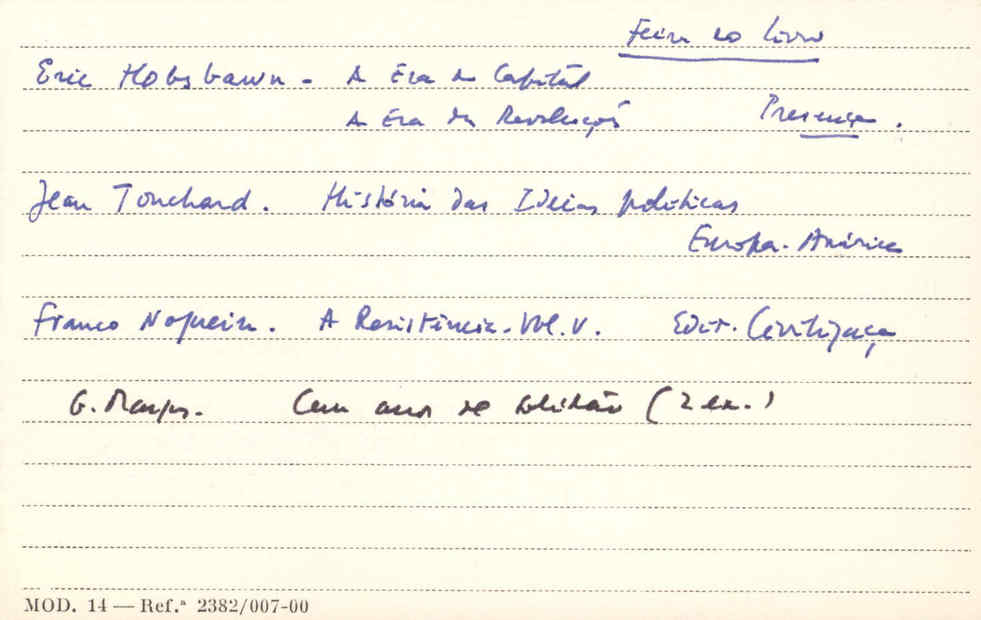 Feira do livro
Eric Hobsbawn - A Era do Capital
A Era da Revolução Presença.
Jean Touchard. História das Ideias políticas
Europa-América
Franco Nogueira. A Resistência. Vol. V. Edit. Civilização
G. Marques. Cem anos de solidão (2 ex.)
MOD. 14 — Ref.ª 2382/007-00